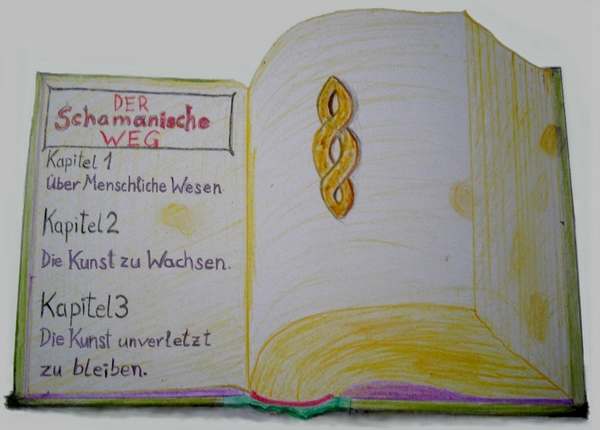 DER
Schamanische
WEG
Kapitel 1
über Menschliche Wesen
Kapitel 2
Die Kunst zu Wachsen.
Kapitel 3
Die Kunst unverletzt
zu bleiben.